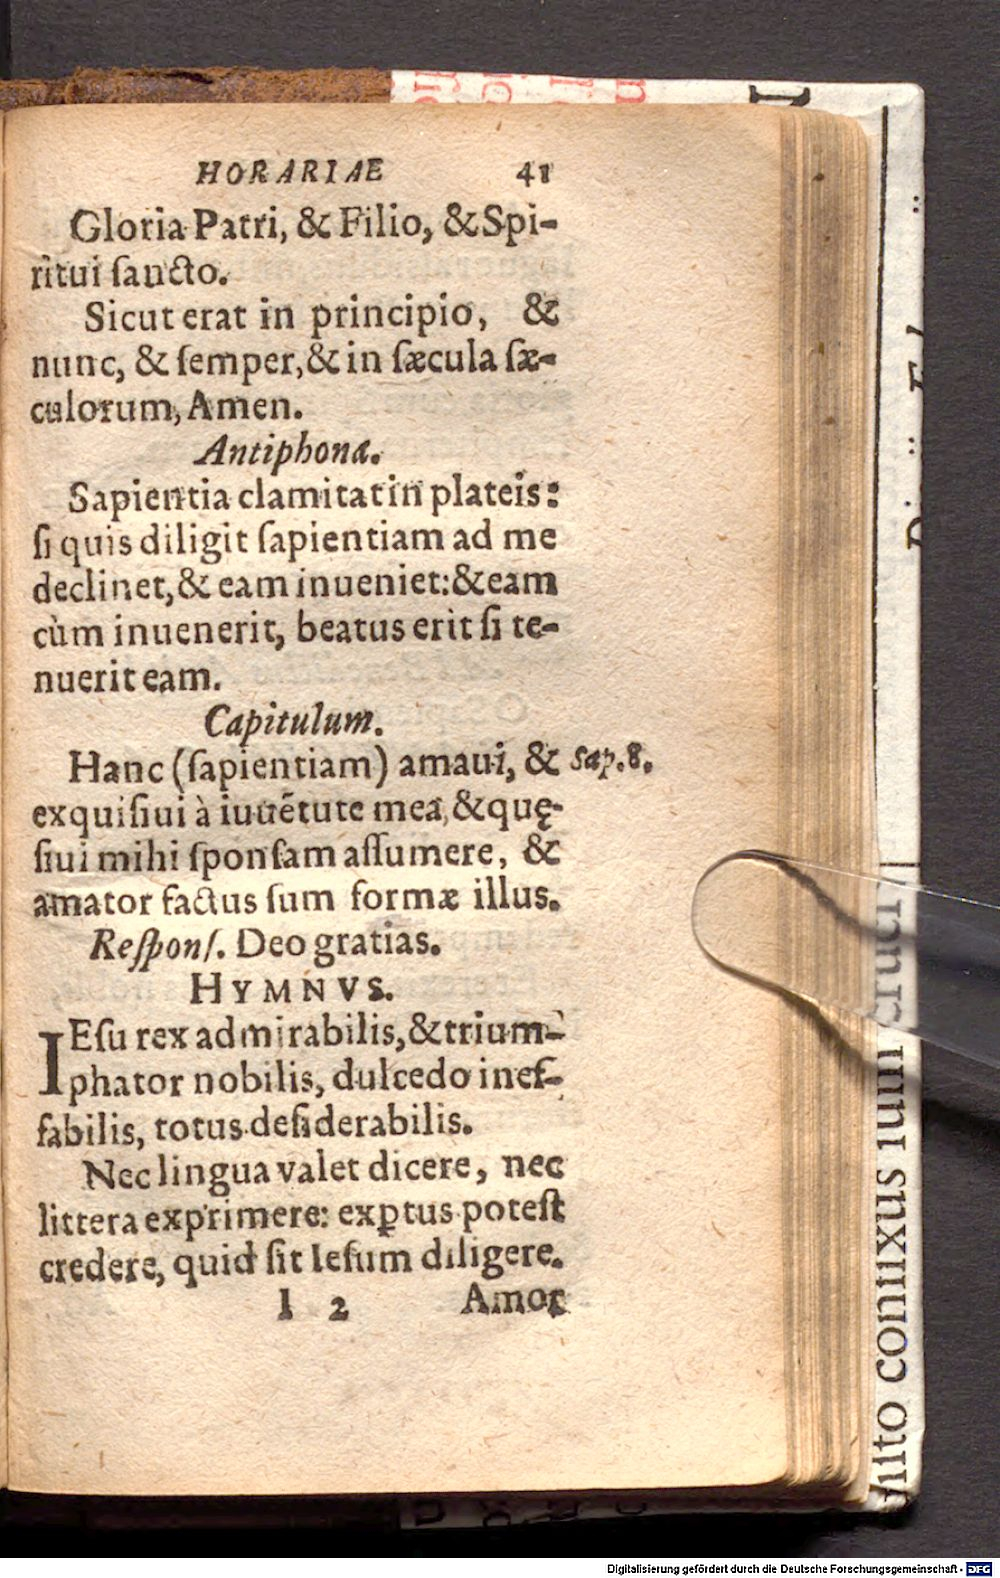 HORARIAE 41
Gloria Patri, & Filio, & Spi-
ritui ſancto.
Sicut erat in principio, &
nunc, & ſemper, & in ſæcula ſæ-
culorum, Amen.
Antiphona.
Sapientia clamitat in plateis:
ſi quis diligit ſapientiam ad me
declinet, & eam inueniet: & eam
cùm inuenerit, beatus erit ſi te-
nuerit eam.
Capitulum.
Hanc (ſapientiam) amaui, & Sap. 8.
exquiſiui à iuuẽtute mea, & quę-
ſiui mihi ſponſam aſſumere, &
amator factus ſum formæ illus.
Reſponſ. Deo gratias.
HYMNVS.
IEſu rex admirabilis, & trium-
phator nobilis, dulcedo inef-
fabilis, totus deſiderabilis.
Nec lingua valet dicere, nec
littera exprimere: exꝑtus poteſt
credere, quid ſit Ieſum diligere.
I 2 Amor
cruci
conixus ium
Digitalisierung gefördert durch die Deutsche Forschungsgemeinschaft - DFG